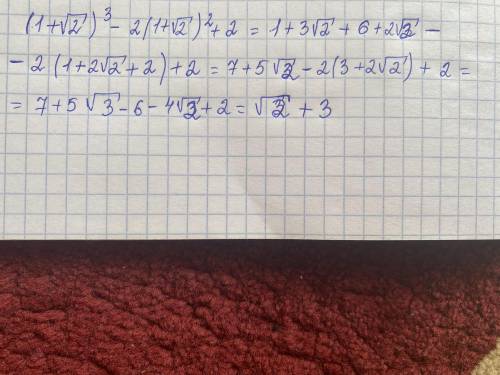 (1+√2)³ - 2(1+√2)² + 2 = 1 + 3√2 + 6 + 2√2 -
- 2(1+2√2+2) + 2 = 7 + 5√2 - 2(3+2√2) + 2 =
= 7 + 5√3 - 6 - 4√2 + 2 = √2 + 3